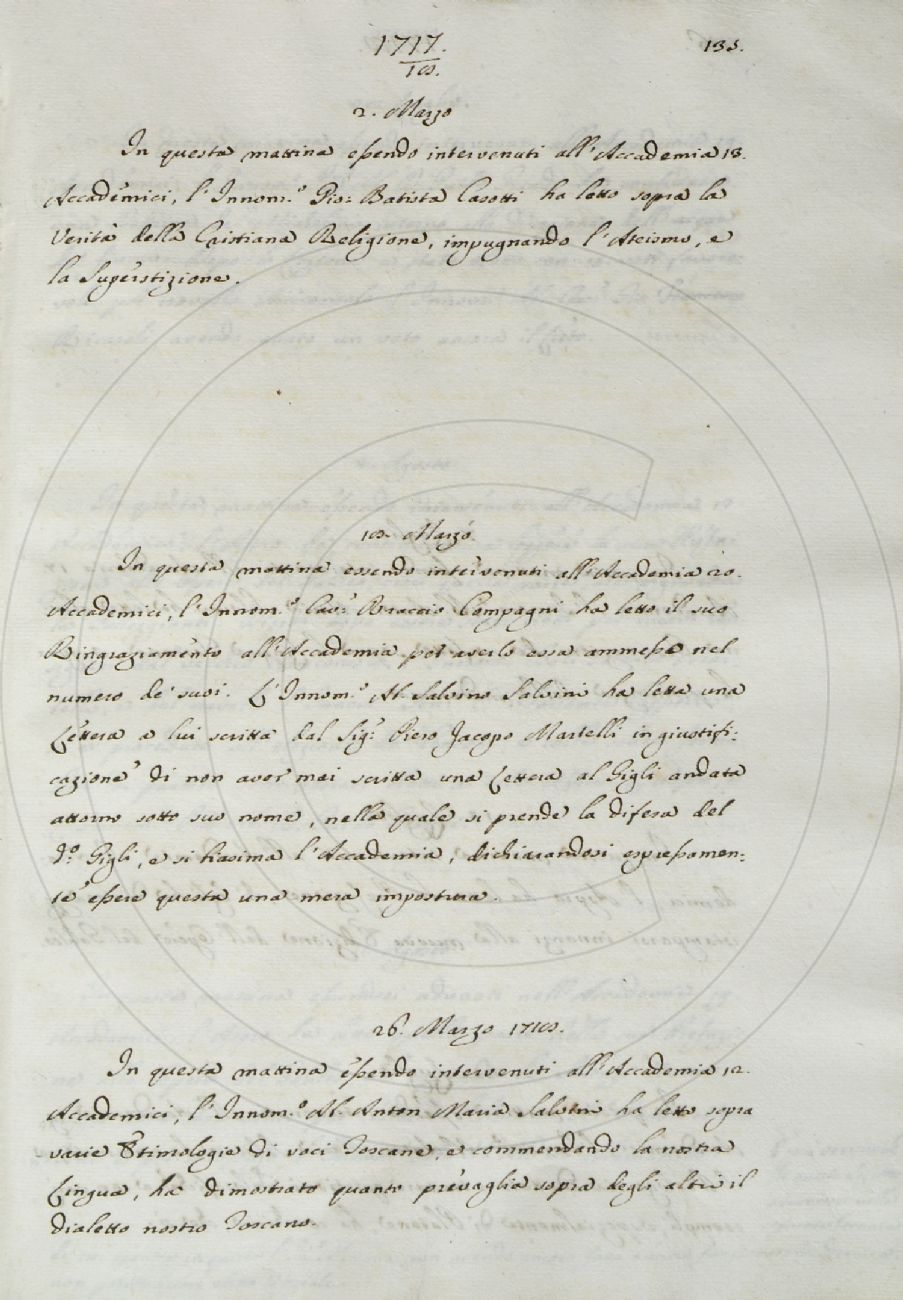 1717.
18.
135.
2. Marzo
In questa mattina essendo intervenuti all'Accademia 18.
Accademici, l'Innom.º Gio: Batista Casotti ha letto sopra la
Verità della Cristiana Religione, impugnando l'Ateismo, e
la Superstizione.
10. Marzo
In questa mattina essendo intervenuti all'Accademia 20.
Accademici, l'Innom.º Cav.ʳ Braccio Compagni ha letto il suo
Ringraziamento all'Accademia per averlo essa ammesso nel
numero de' suoi. L'Innom.º Ab. Salvino Salvini ha letta una
Lettera a lui scritta dal Sig.ʳ Piero Jacopo Martelli in giustifi:
cazione di non aver mai scritta una Lettera al Gigli andata
attorno sotto suo nome, nella quale si prende la difesa del
d.º Gigli, e si biasima l'Accademia, dichiarandosi espressamen:
te essere questa una mera impostura.
26. Marzo 1718.
In questa mattina essendo intervenuti all'Accademia 12.
Accademici, l'Innom.º Ab. Anton Maria Salvini ha letto sopra
varie Etimologie di voci Toscane, e commendando la nostra
Lingua, ha dimostrato quanto prevaglia sopra degli altri il
dialetto nostro Toscano.